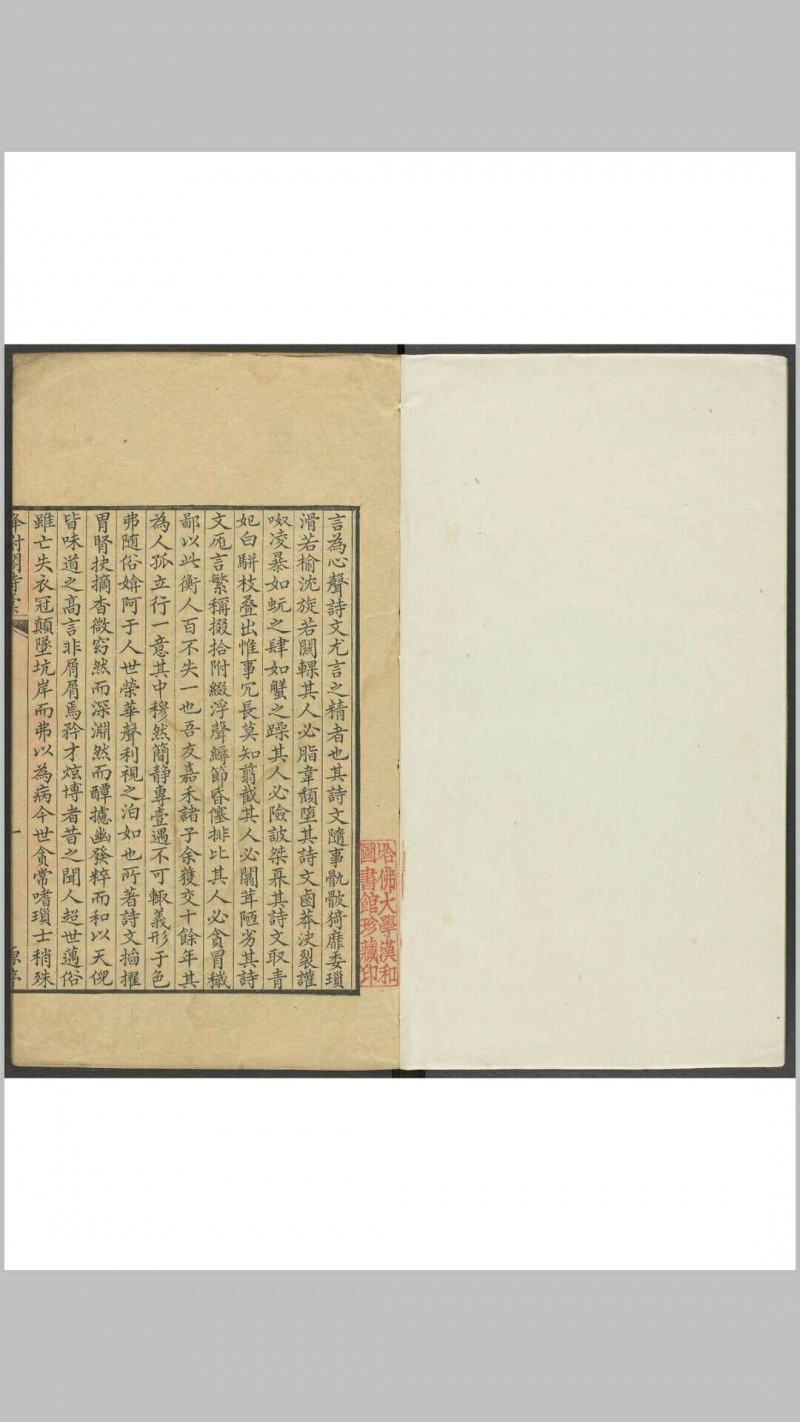 言為心聲詩文尤言之精者也其詩文隨事骫骳猗靡委瑣
滑若榆沈旋若闤輠其人必脂韋頹墮其詩文鹵莽決裂讙
呶凌暴如蚖之肆如蟹之躁其人必險詖桀奡其詩文取青
妃白駢枝疊出惟事冗長莫知翦截其人必闒茸陋劣其詩
文卮言繁稱掇拾附綴浮聲縟節昏僿排比其人必貪冒穢
鄙以此衡人百不失一也吾友嘉禾諸子余獲交十餘年其
為人孤立行一意其中穆然簡靜專壹遇不可輒義形于色
弗隨俗媕阿于人世榮華聲利視之泊如也所著詩文搯擢
胃腎抉摘杳微窈然而深淵然而醰攄幽發粹而和以天倪
皆味道之高言非屑屑焉矜才炫博者昔之聞人超世邁俗
雖亡失衣冠顛墜坑岸而弗以為病今世貪常嗜瑣士稍殊
一
哈佛大學漢和
圖書館珍藏印